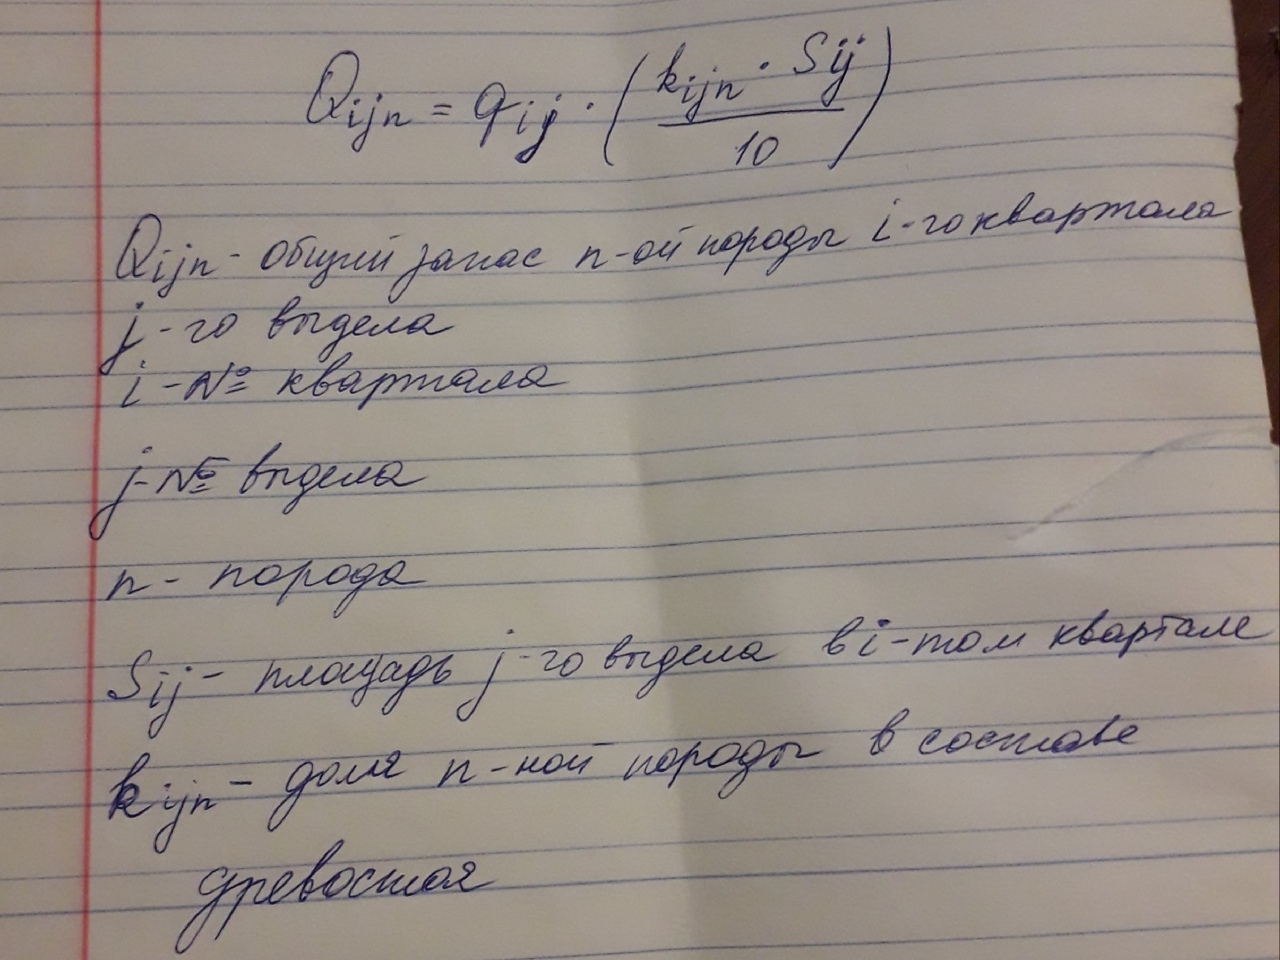 Qijn = qij · (kijn · Sij / 10)
Qijn - общий запас n-ой породы i-го квартала
j-го выдела
i - № квартала
j - № выдела
n - порода
Sij - площадь j-го выдела в i-том квартале
kijn - доля n-ной породы в составе
древостоя